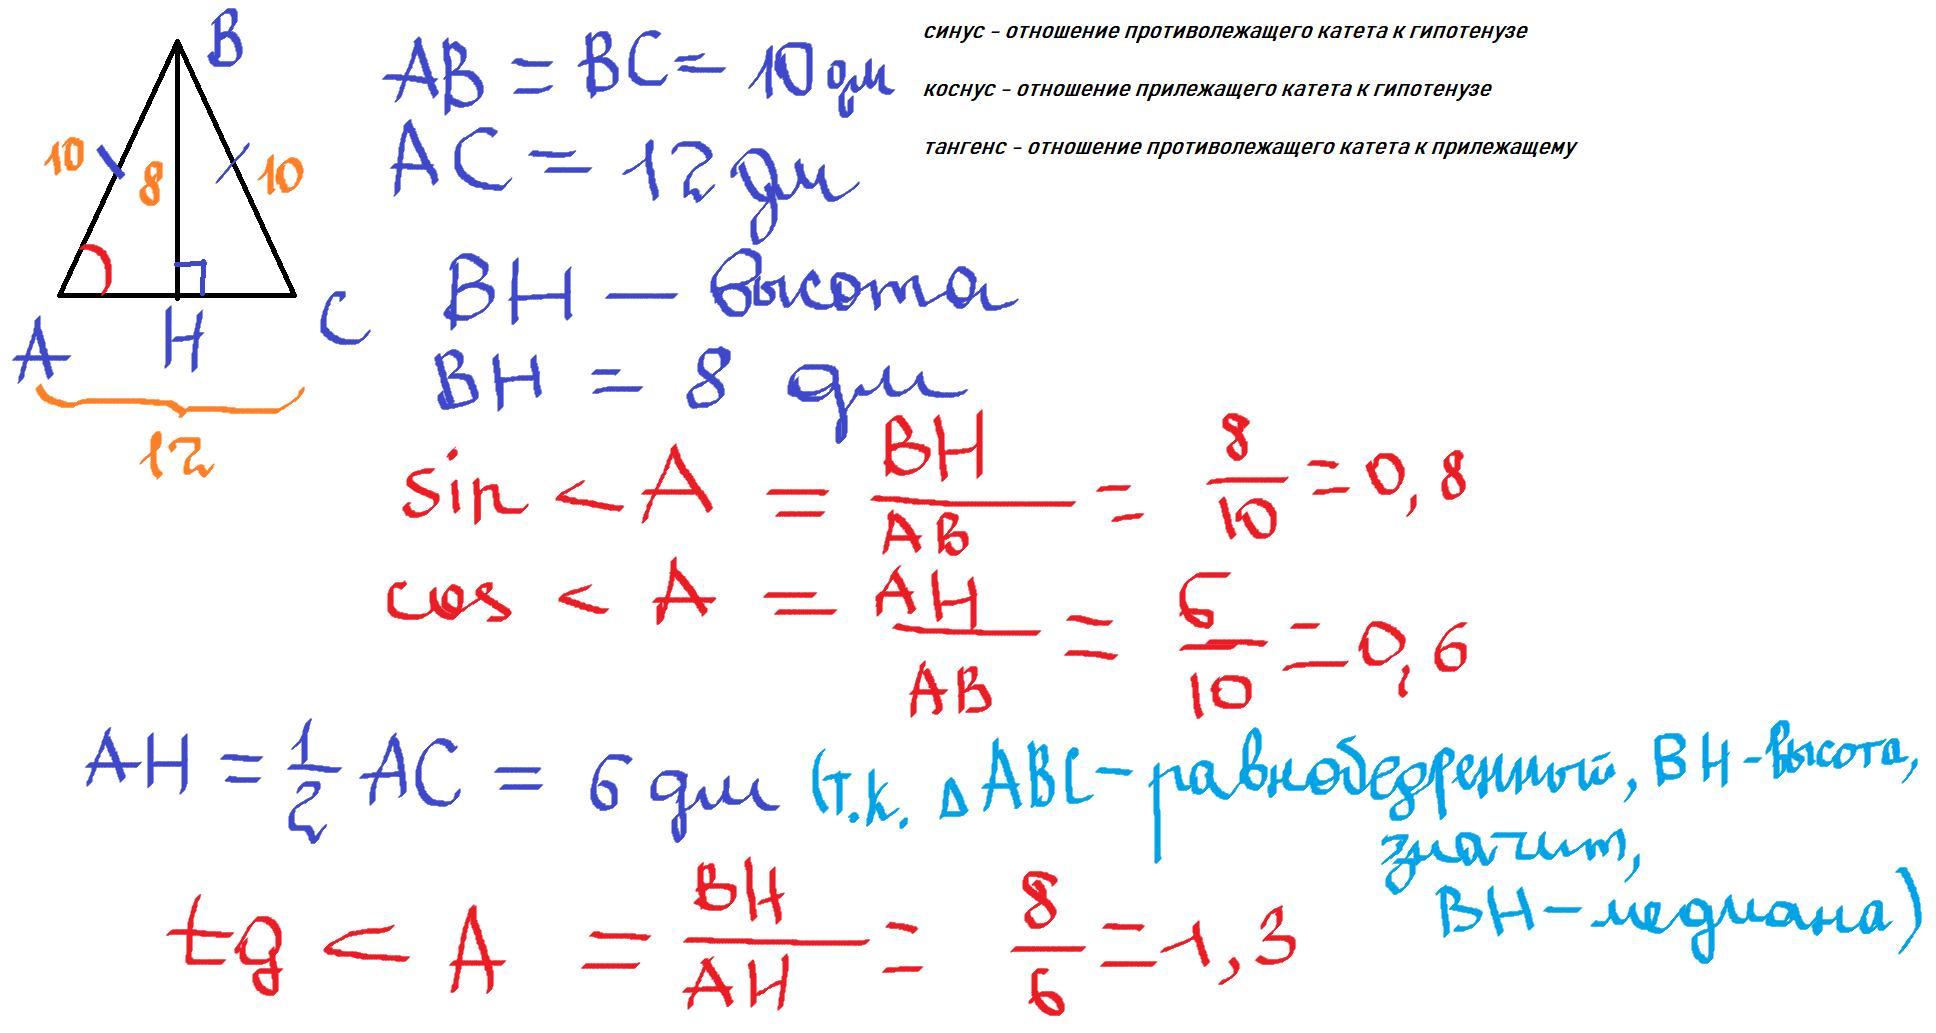 B
10
8
10
A
H
C
12
AB = BC = 10 дм
AC = 12 дм
BH — высота
BH = 8 дм
синус - отношение противолежащего катета к гипотенузе
коснус - отношение прилежащего катета к гипотенузе
тангенс - отношение противолежащего катета к прилежащему
sin < A = BH/AB = 8/10 = 0,8
cos < A = AH/AB = 6/10 = 0,6
AH = 1/2 AC = 6 дм (т.к. Δ ABC - равнобедренный, BH - высота,
значит,
BH - медиана)
tg < A = BH/AH = 8/6 = 1,3